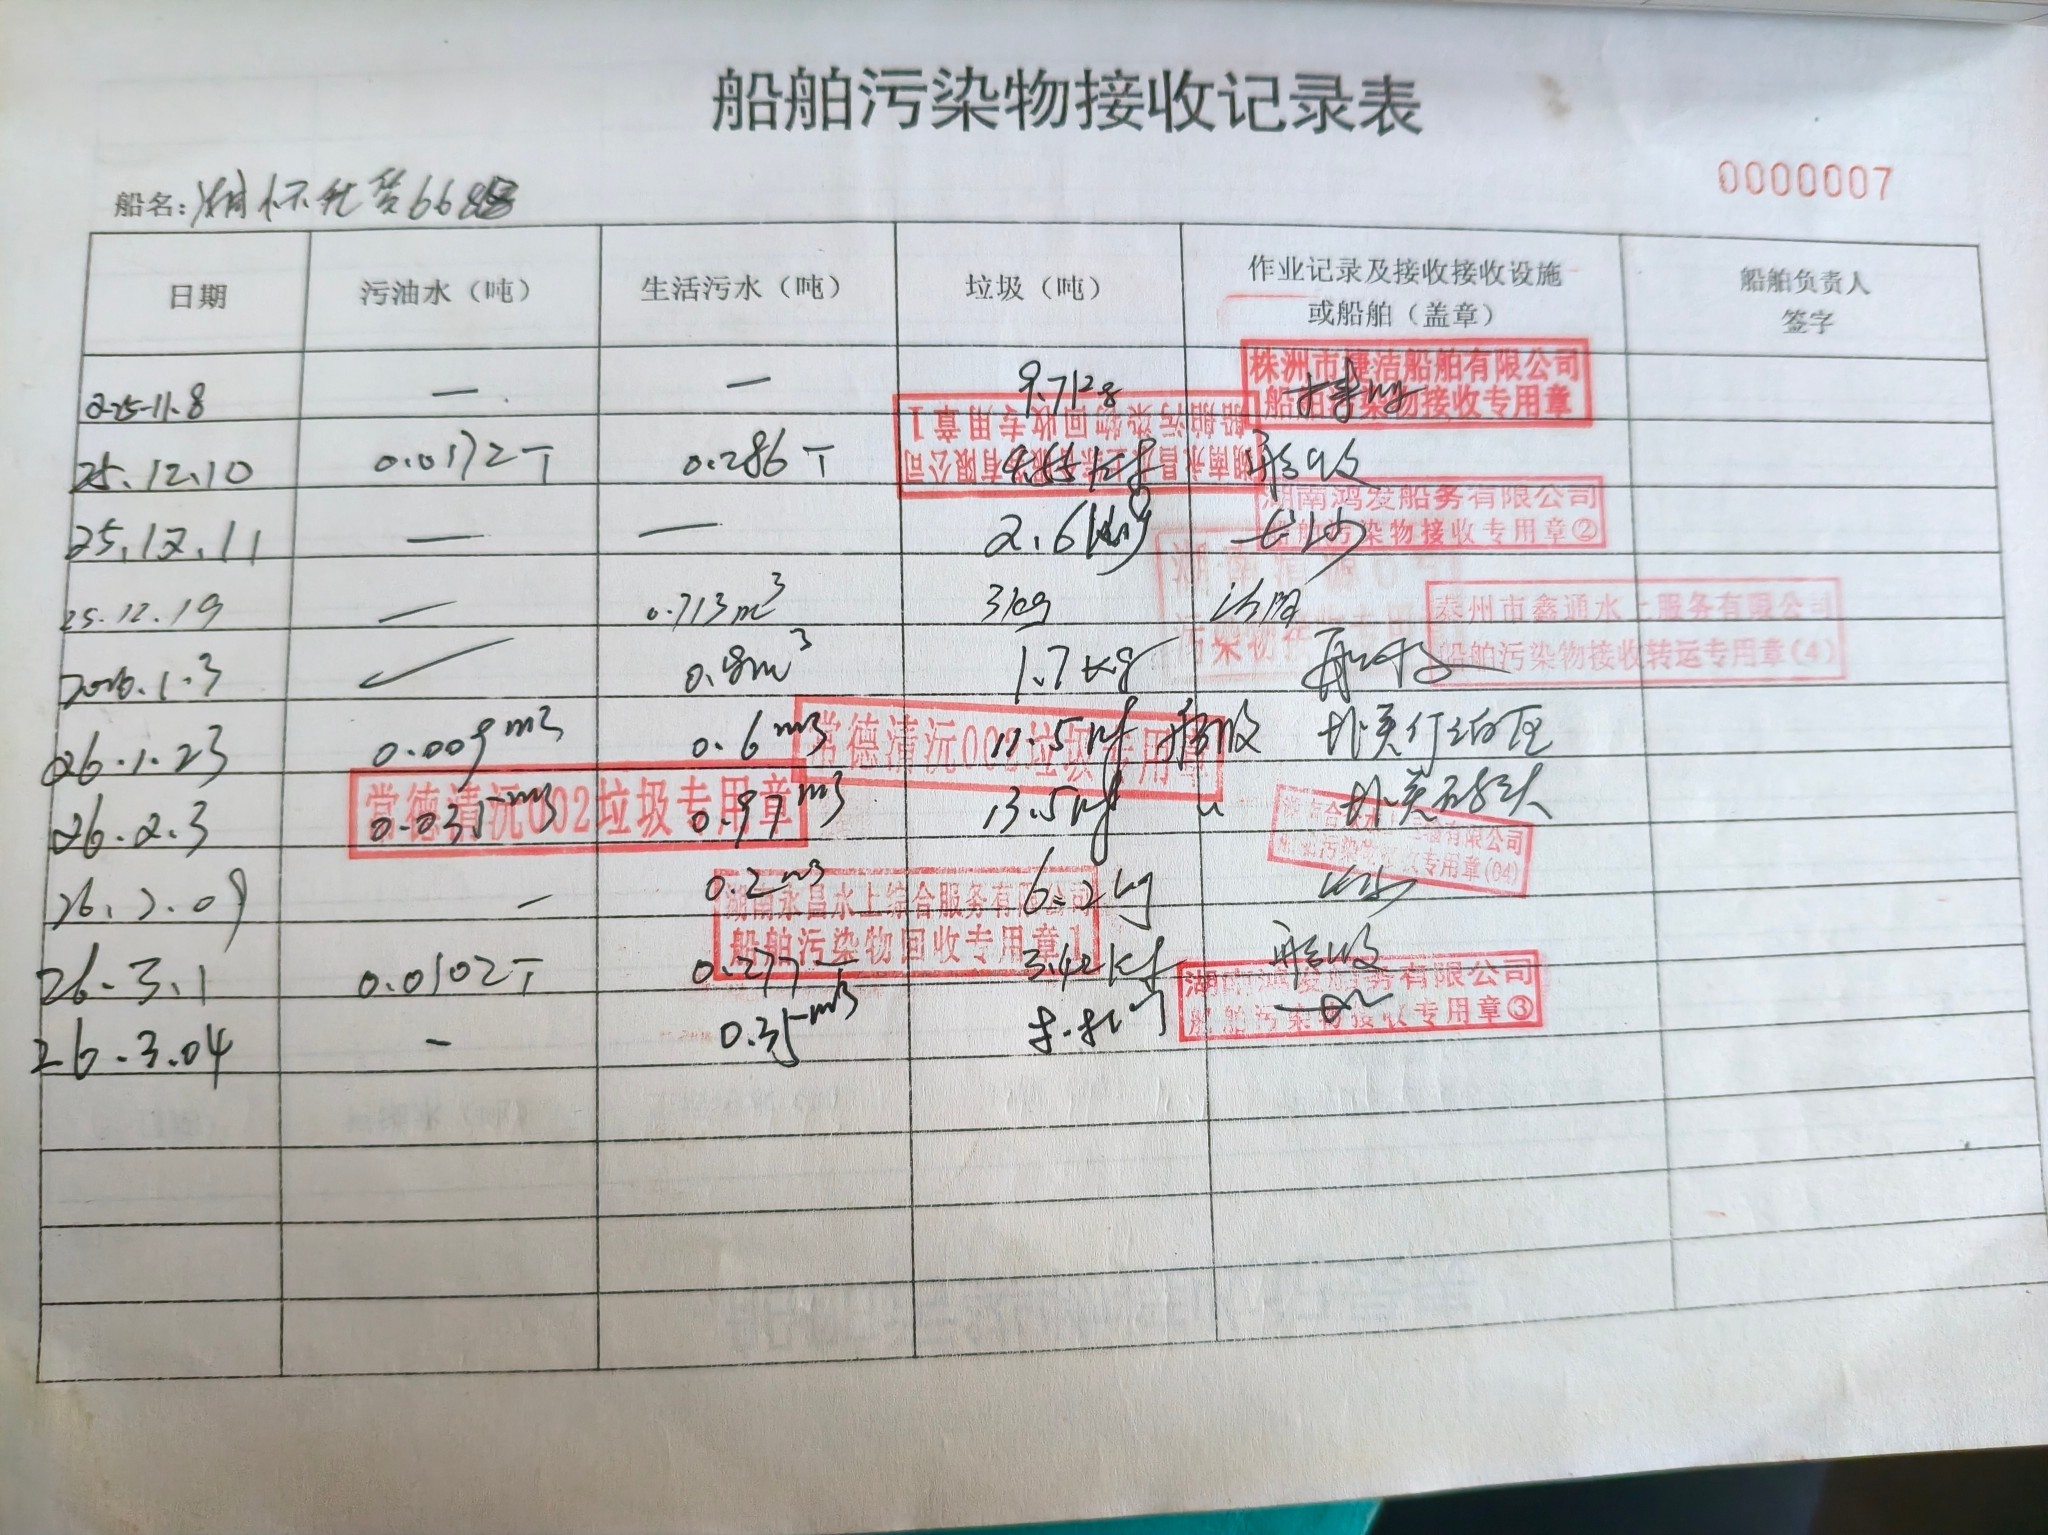 船舶污染物接收记录表
0000007
船名：湘怀化货6688
日期 污油水（吨） 生活污水（吨） 垃圾（吨） 作业记录及接收接收设施或船舶（盖章） 船舶负责人签字
株洲市捷洁船舶有限公司
船舶污染物接收专用章
25.11.8 — —
湖南永昌水上综合服务有限公司
船舶污染物回收专用章1
25.12.10 0.0172T 0.286T 接收
湖南鸿发船务有限公司
船舶污染物接收专用章②
25.12.11 — — 2.6kg 长沙
25.12.19 — 0.713m³ 3kg
泰州市鑫通水上服务有限公司
船舶污染物接收转运专用章(4)
2026.1.3 0.8m³ 1.7kg
常德清沅002垃圾专用章
26.1.23 0.009m³ 0.6m³ 接收
常德清沅002垃圾专用章
26.2.3 0.035m³ 0.97m³ 13.5kg
水上运输有限公司
船舶污染物接收专用章(04)
26.2.09 — 0.2m³ 6.2kg 长沙
湖南永昌水上综合服务有限公司
船舶污染物回收专用章1
26.3.1 0.0102T 0.277 3.42kg 接收
湖南鸿发船务有限公司
船舶污染物接收专用章③
26.3.04 - 0.35m³